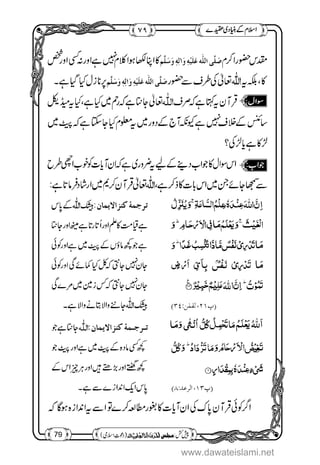 اسلام کے بنیادی عقیدے ۷۹
مقدس حضور اکرم صَلَّی اللّٰہ عَلَیْہِ وَاٰلِہٖ وَسَلَّم کا اپنا لکھا ہوا کلام نہیں ہے اور نہ ہی کسی اور شخص
کا، بلکہ یہ اللّٰہ تعالٰی کی طرف سے حضور صَلَّی اللّٰہ عَلَیْہِ وَاٰلِہٖ وَسَلَّم پر نازل کیا گیا ہے۔
سوال قرآن یہ کہتا ہے کہ صرف اللّٰہ تعالٰی جانتا ہے کہ رحم میں کیا ہے، کیا یہ میڈیکل
سائنس کے خلاف نہیں کیونکہ آج کے دور میں یہ معلوم کیا جا سکتا ہے کہ پیٹ میں
لڑکا ہے یا لڑکی؟
جواب اس سوال کا جواب دینے کے لیے یہ ضروری ہے کہ ان آیات کو اچھی طرح
سے سمجھا جائے جن میں اس بات کا ذکر ہے، اللّٰہ تعالٰی قرآن کریم میں ارشاد فرماتا ہے:
اِنَّ اللّٰهَ عِنْدَهٗ عِلْمُ السَّاعَةِ ۚ وَ یُنَزِّلُ
الْغَیْثَ ۚ وَ یَعْلَمُ مَا فِی الْاَرْحَامِ ؕ وَ
مَا تَدْرِیْ نَفْسٌ مَّاذَا تَكْسِبُ غَدًا ؕ وَ
مَا تَدْرِیْ نَفْسٌۢ بِاَیِّ اَرْضٍ
تَمُوْتُ ؕ اِنَّ اللّٰهَ عَلِیْمٌ خَبِیْرٌ
(پ ۲۱، لقمٰن: ۳۴)
ترجمۂ کنز الایمان: بیشک اللّٰہ کے پاس
ہے قیامت کا علم اور اتارتا ہے مینھ اور جانتا
ہے جو کچھ ماؤں کے پیٹ میں ہے اور کوئی
جان نہیں جانتی کہ کل کیا کمائے گی اور کوئی
جان نہیں جانتی کہ کس زمین میں مرے گی
بیشک اللّٰہ جاننے والا بتانے والا ہے۔
اَللّٰهُ یَعْلَمُ مَا تَحْمِلُ كُلُّ اُنْثٰى وَ مَا
تَغِیْضُ الْاَرْحَامُ وَ مَا تَزْدَادُ ؕ وَ كُلُّ
شَیْءٍ عِنْدَهٗ بِمِقْدَارٍ
(پ ۱۳، الرعد: ۸)
ترجمۂ کنز الایمان: اللّٰہ جانتا ہے جو
کچھ کسی مادہ کے پیٹ میں ہے اور پیٹ جو
کچھ گھٹتے اور بڑھتے ہیں اور ہر چیز اس کے
پاس ایک اندازے سے ہے۔
اگر کوئی قرآن پاک کی ان آیات کا بغور مطالعہ کرے تو اسے یہ اندازہ ہوگا کہ
79
www.dawateislami.net